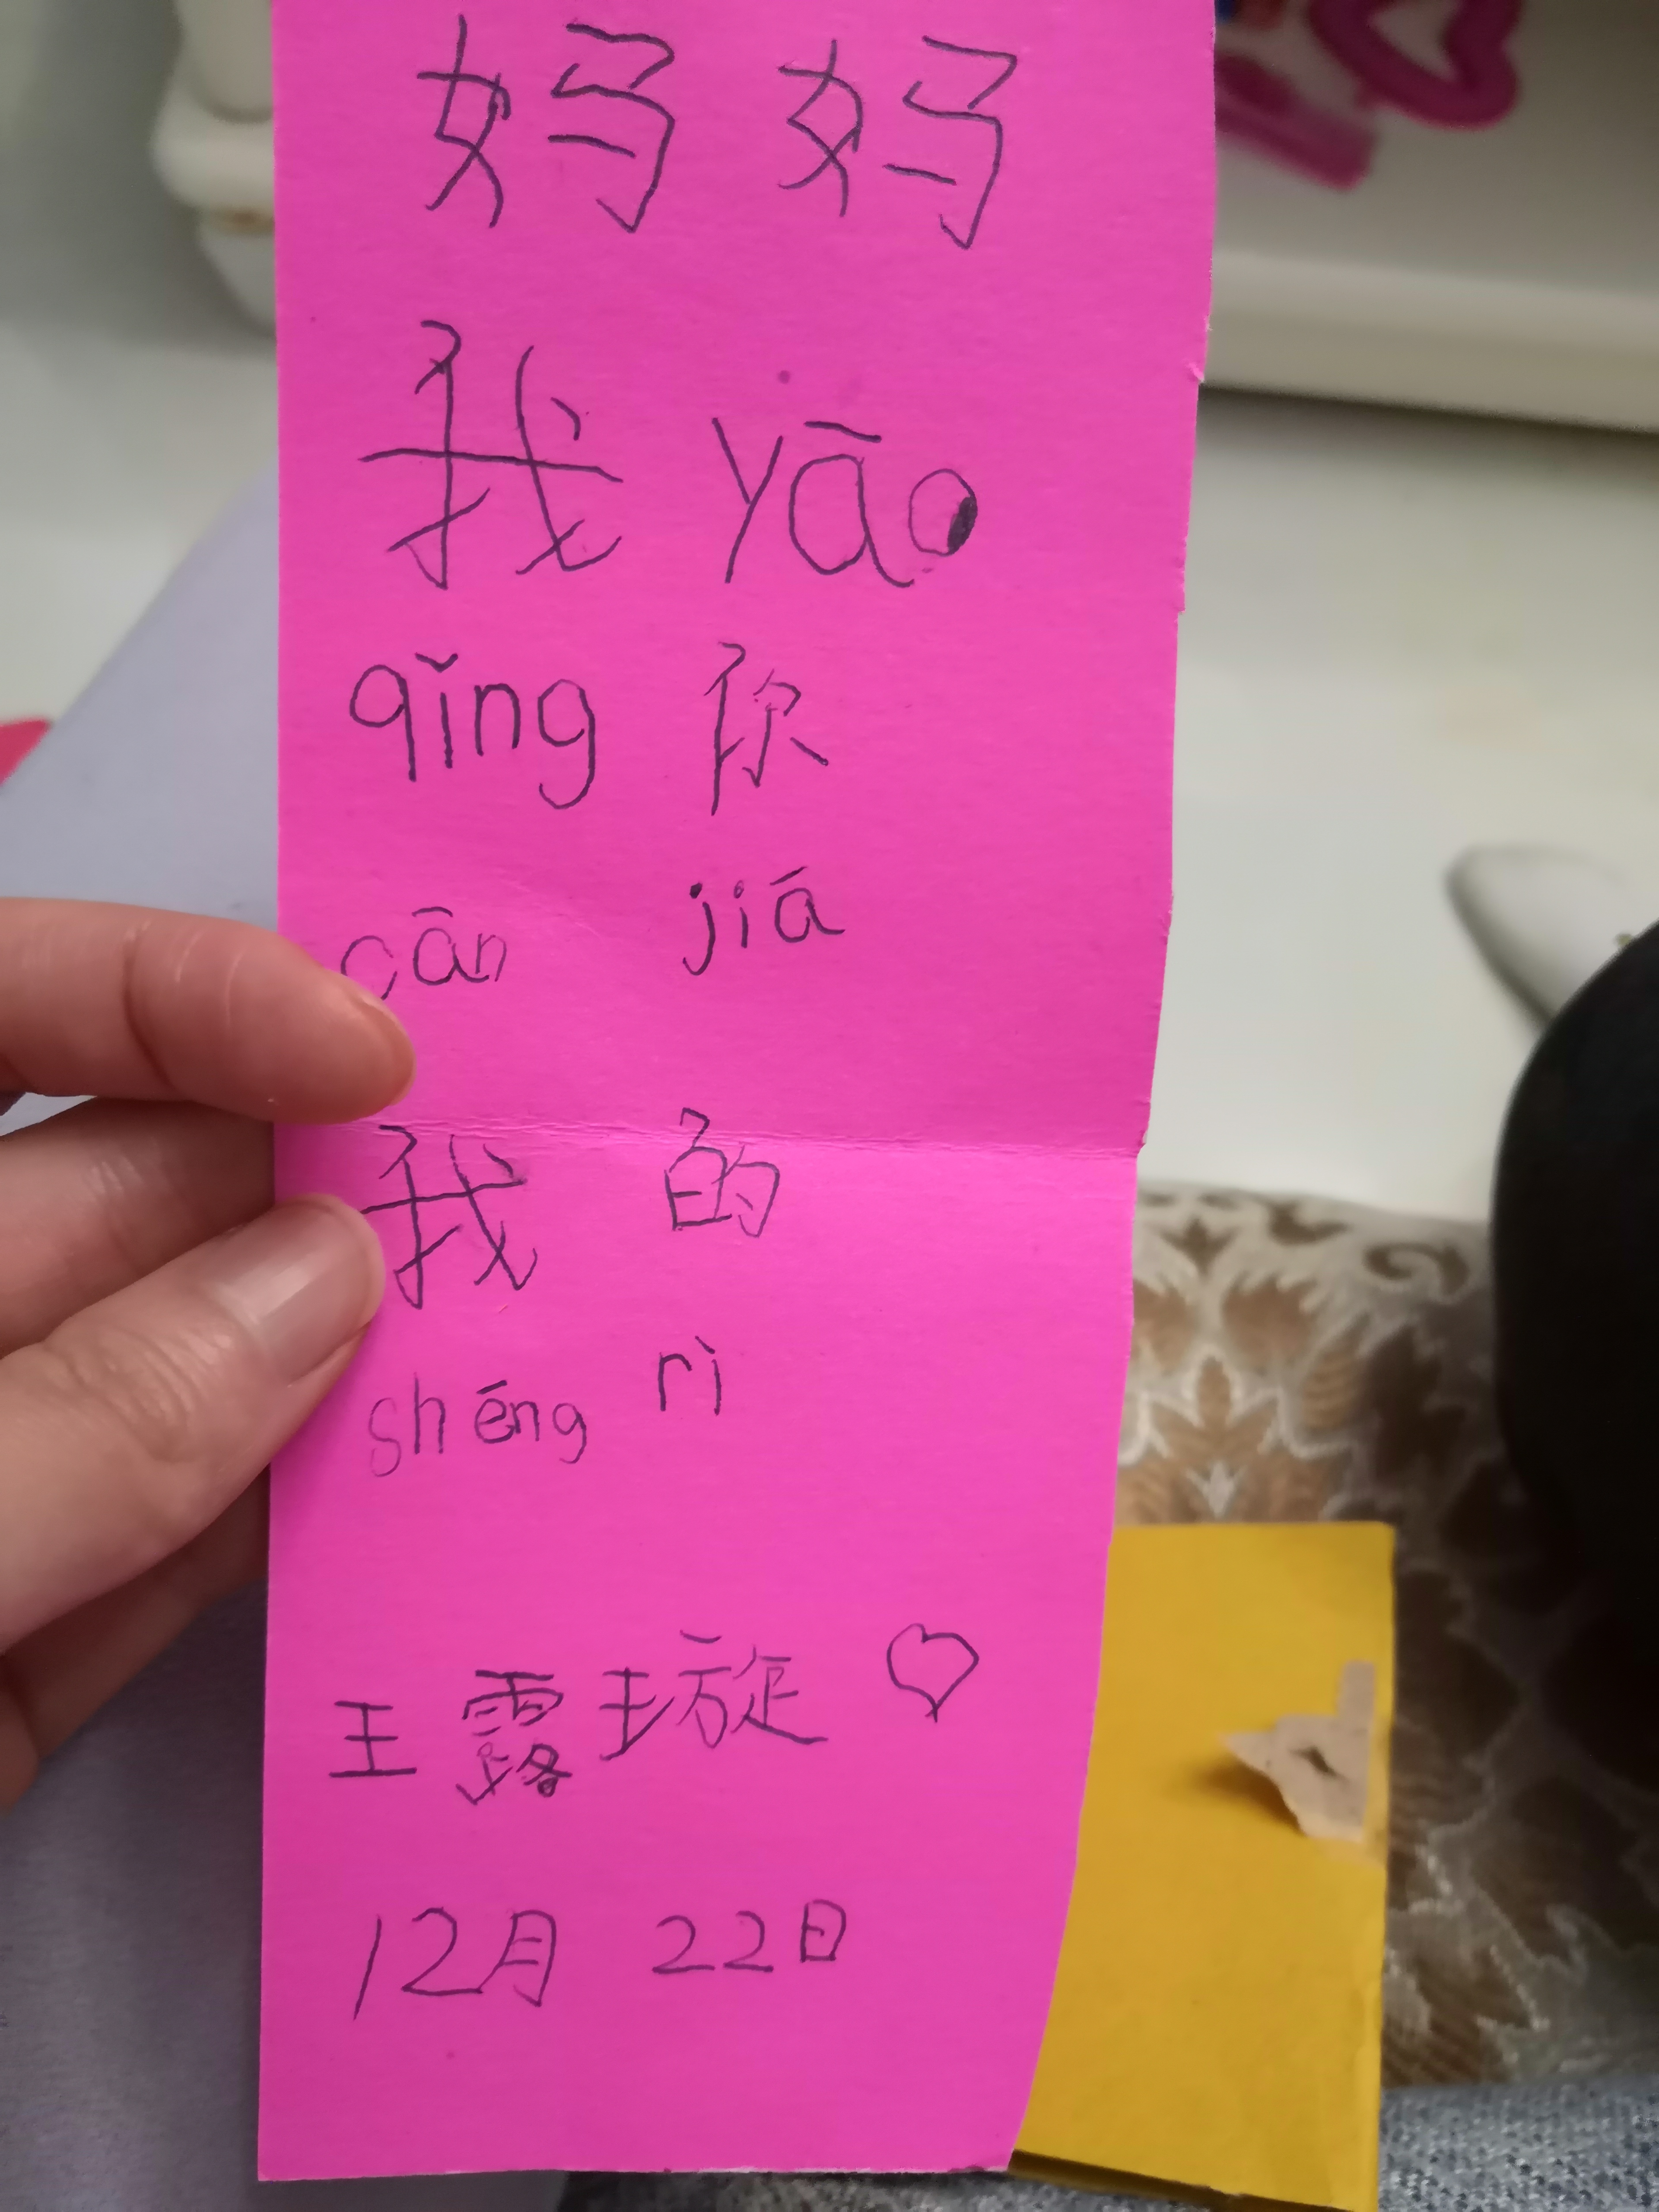 妈妈
我 yāo
qǐng 你
cān jiā
我 的
shēng rì
王露璇♡
12月 22日